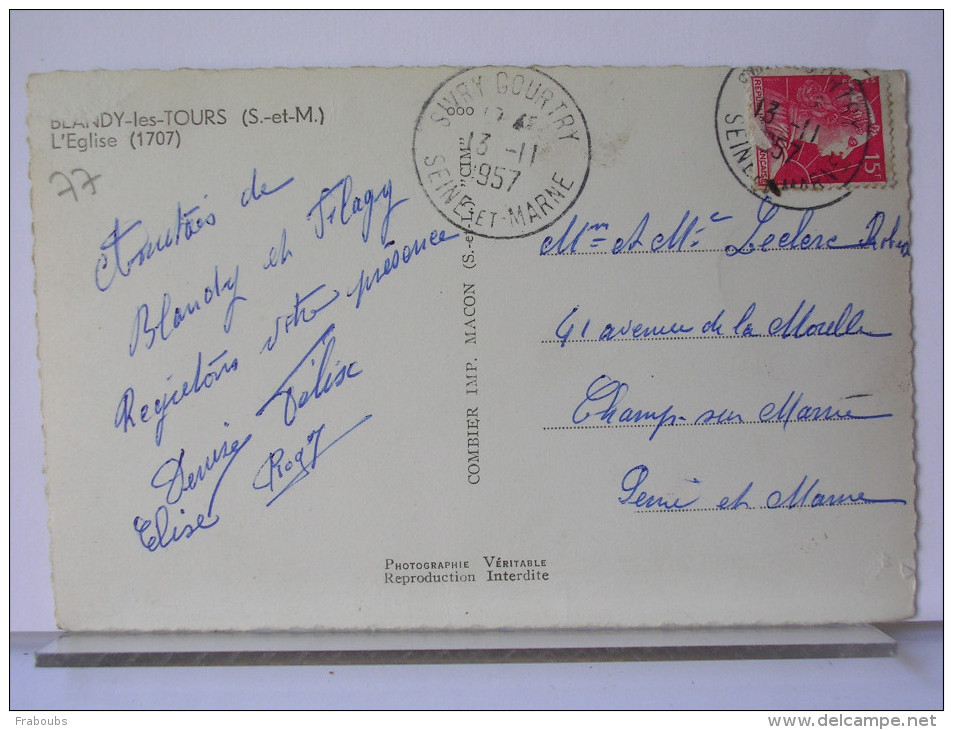 BLANDY-les-TOURS (S.-et-M.)
L'Eglise (1707)
77
Amitiés de
Blandy et Flagy
Regretons votre présence
Denise Félix
Elise Rogy
PHOTOGRAPHIE VÉRITABLE
Reproduction Interdite
COMBIER IMP. MACON (S.-et-L.) "CIM"
SIVRY COURTRY
13 -11
1957
SEINE-ET-MARNE
13 -11
57
SEINE
15F
Mme et Mr Leclerc
41 avenue de la Morelle
Champ-sur Marne
Seine et Marne
Fraboubs
www.delcampe.net